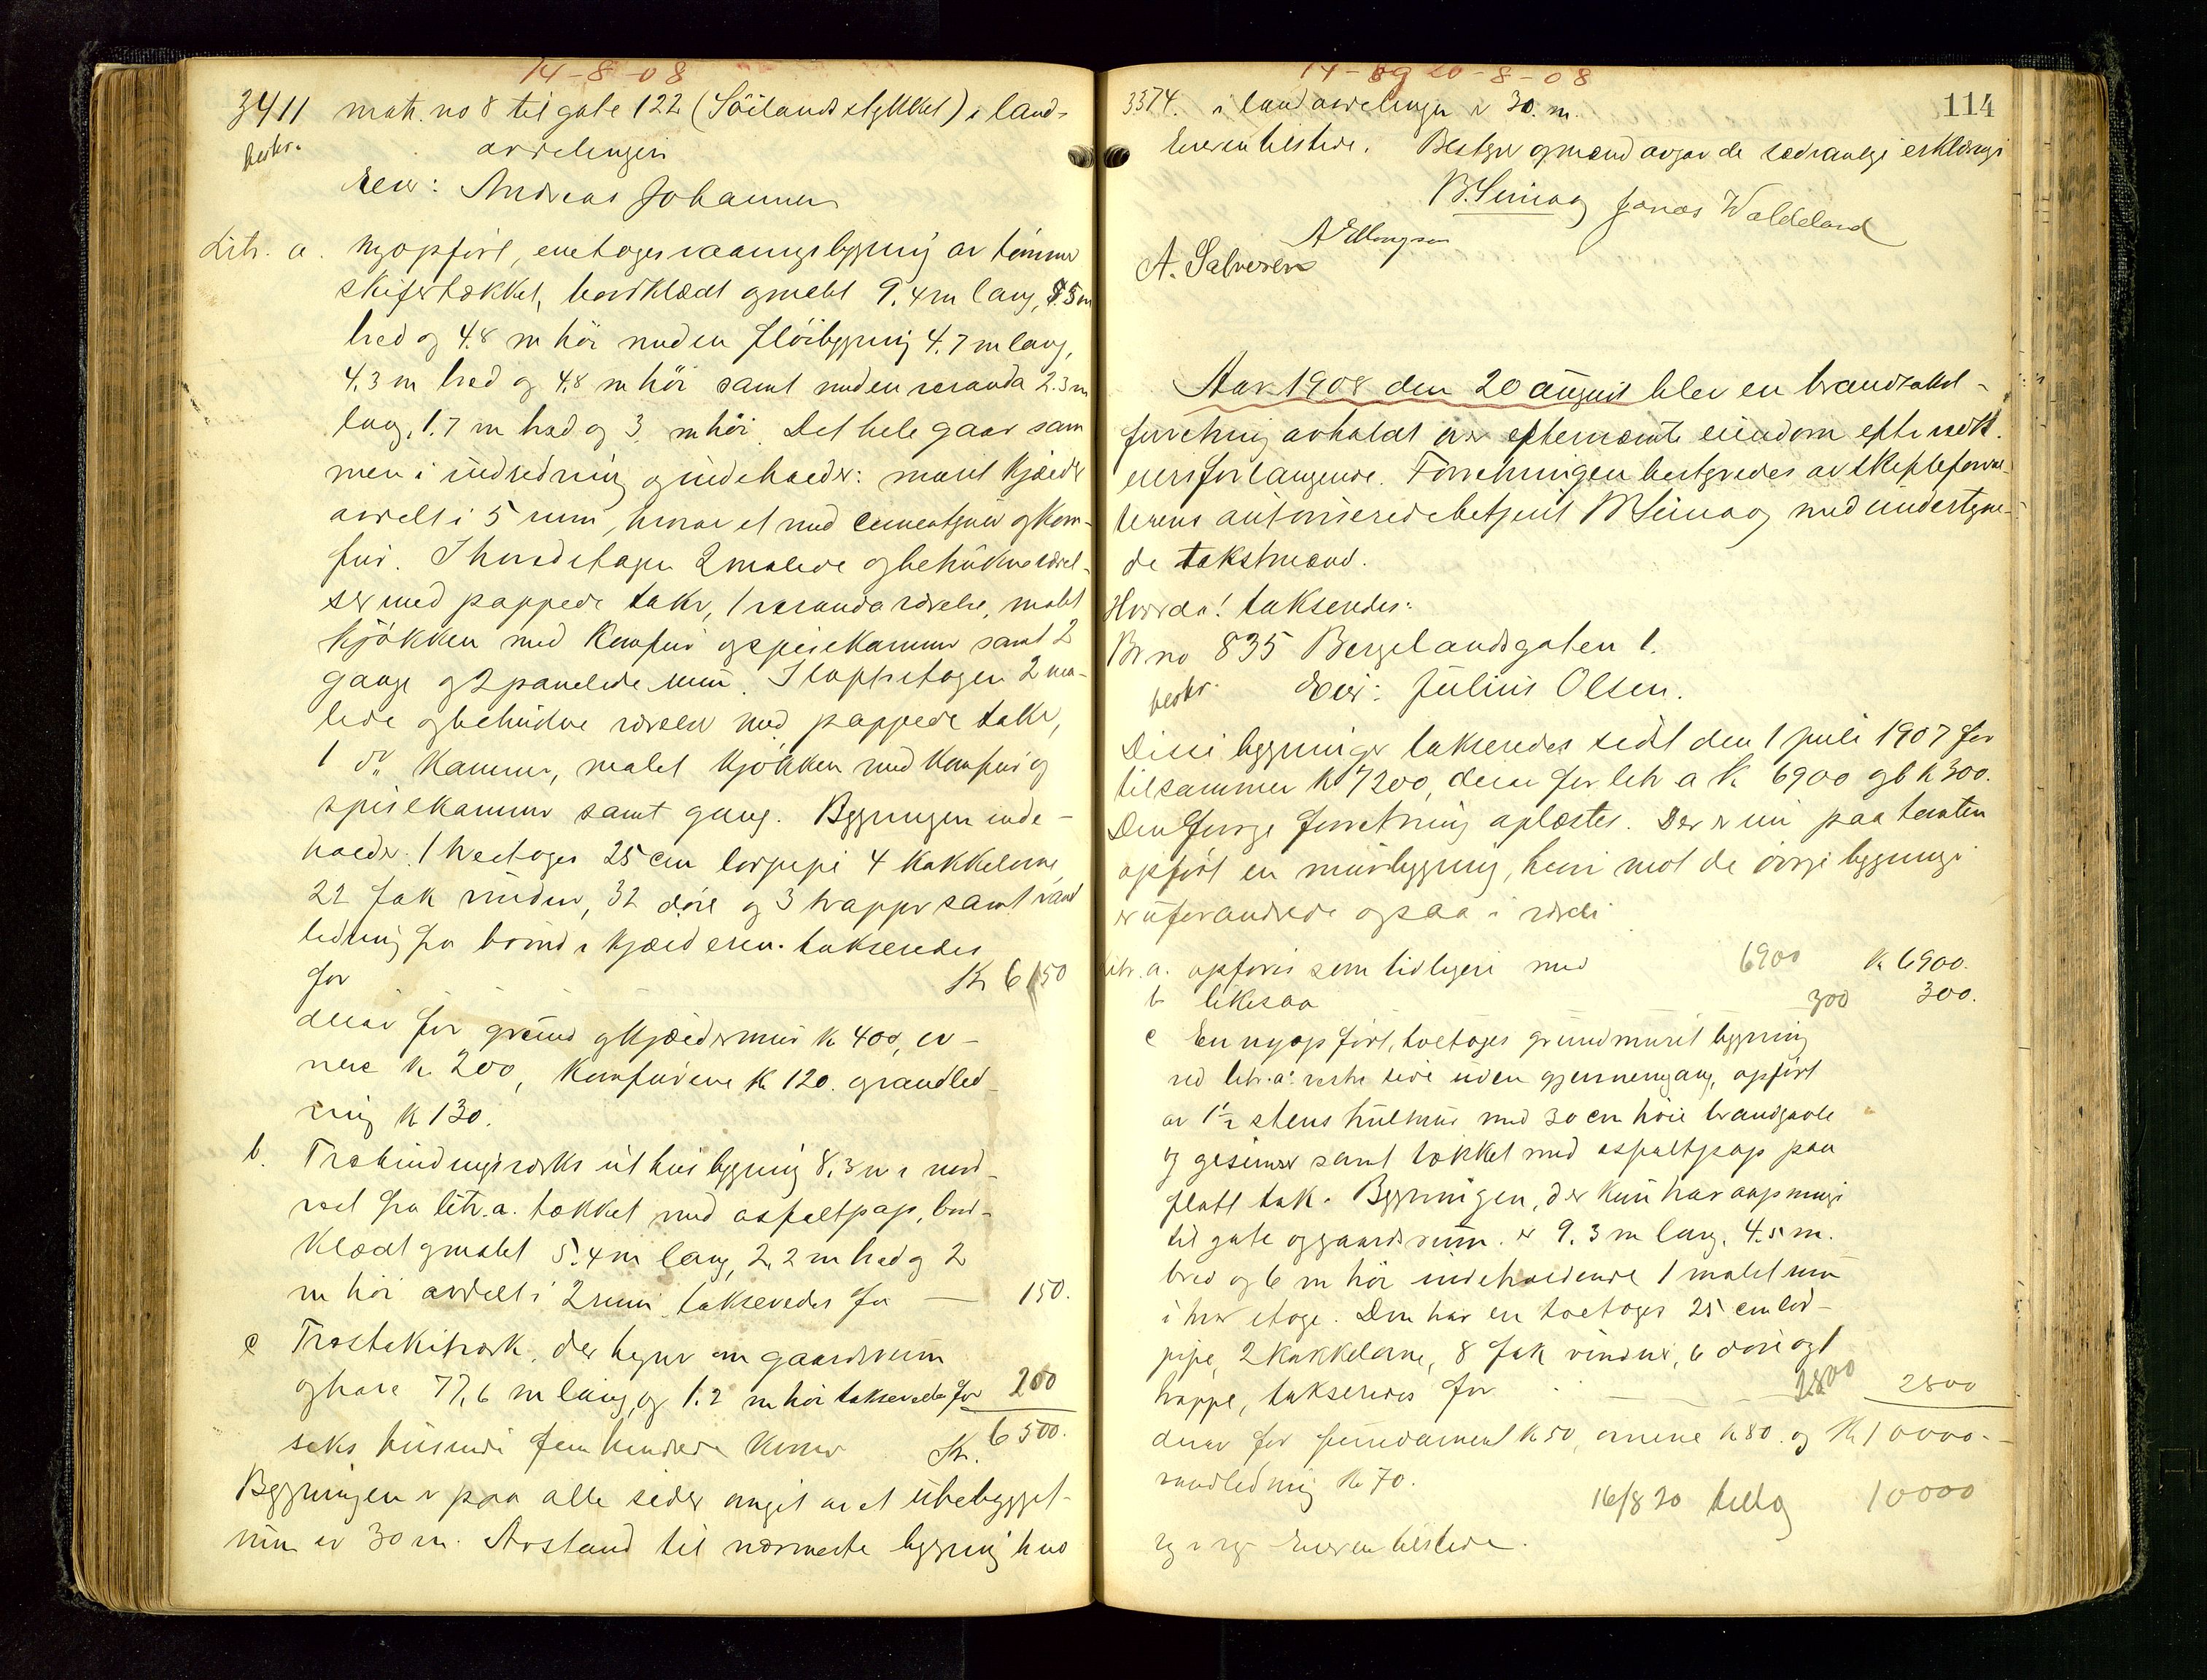 14-8-08
3411 matr. no 8 til gate 122 (Söilandsstykket) i land-
beskr. avdelingen
Eier: Andreas Johannesen
Litr. a. Nyopfört, enetages vaaningsbygning av tömmer
skifertækket, bordklædt og malt 9.4 m lang, 7.5 m
bred og 4.8 m höi med en flöibygning 4.7 m lang,
4.3 m bred og 4.8 m höi samt med en veranda 2.3 m
lang, 1.7 m bred og 3 m höi. Det hele gaar sam
men i indredning og indeholder: muret kjælder
avdelt i 5 rum, hvorav et med cementgulv og kom-
fur. I hovedetagen 2 malede og betrukne værel-
ser med pappede take, 1 verandaværelse, malet
kjökken med komfur og spisekammer samt 2
gange og 2 panelede rum. I loftsetagen 2 ma-
lede og betrukne værelser med pappede take,
1 do kammer, malet kjökken med komfur og
spisekammer samt gang. Bygningen inde-
holder: 1 treetages 25 cm lodpipe 4 kakkelovne,
22 fak vinduer, 32 döre og 3 trapper samt vand
ledning fra brönd i kjælderen. takseredes
for Kr 6150
derav for grund og kjældermur kr 400, ov-
nene kr 200, komfurene kr 120. og vandled-
ning kr 130.
b. Træbindingsverks uthusbygning 8.3 m i nord-
vest fra litr. a. tækket med asfaltpap, bord-
klædt og malet 5.4 m lang, 2,2 m bred og 2
m höi avdelt i 2 rum takseredes for — 150.
c Træstakitverk, der hegner om gaardsrum
og have 77,6 m lang, og 1.2 m höi takseredes for 200
seks tusinde fem hundrede kroner Kr. 6500.
Bygningen er paa alle sider omgit av et ubebygget
rum av 30 m. Avstand til nærmeste bygning hvo
14-8 og 20-8-08
114
3374. i landavdelingen er 30. m.
Eieren tilstede. Bestyrer og mænd avgav de sedvanlige erklæringer
B. Simag Jonas Waldeland
A Ellingsen
A. Salvesen
Aar 1908 den 20 august blev en brandtakst-
forretning avholdt over efternævnte eiendom efter vedk.
eiers forlangende. Forretningen bestyredes av skifteforval-
terens autoriserede betjent B Simag med undertegne-
de takstmænd.
Hvorda! takseredes:
Br no 835 Bergelandsgaten 1.
beskr. Eier: Julius Olsen.
Disse bygninger takseredes sidst den 1 juli 1907 for
tilsammen kr 7200, derav for litr a kr 6900 og b kr 300.
Den forrige forretning oplæstes. Der er nu paa tomten
opfört en murbygning, hvori mot de övrige bygninger
er uforandrede ogsaa i værdi
Litr. a. opföres som tidligere med 6900 kr 6900.
b likesaa 300 300.
c En nyopfört, toetages grundmuret bygning
ved litr. a's vestre side uden gjennemgang, opfört
av 1½ stens hulmur med 30 cm höie brandgavle
og gesimser samt tækket med asfaltpap paa
flatt tak. Bygningen, der kun har aapninger
til gate og gaardsrum. er 9.3 m lang, 4.5 m.
bred og 6 m höi indeholdende 1 malet rum
i hver etage. Den har en toetages 25 cm lod-
pipe, 2 kakkelovne, 8 fak vinduer, 6 döre og 1
trappe, takseredes for 2800 2800
derav for fundament kr 50, ovnene kr 80. og Kr 10000.-
vandledning kr 70.
16/8 20 tillæg 10000
Eieren tilstede.